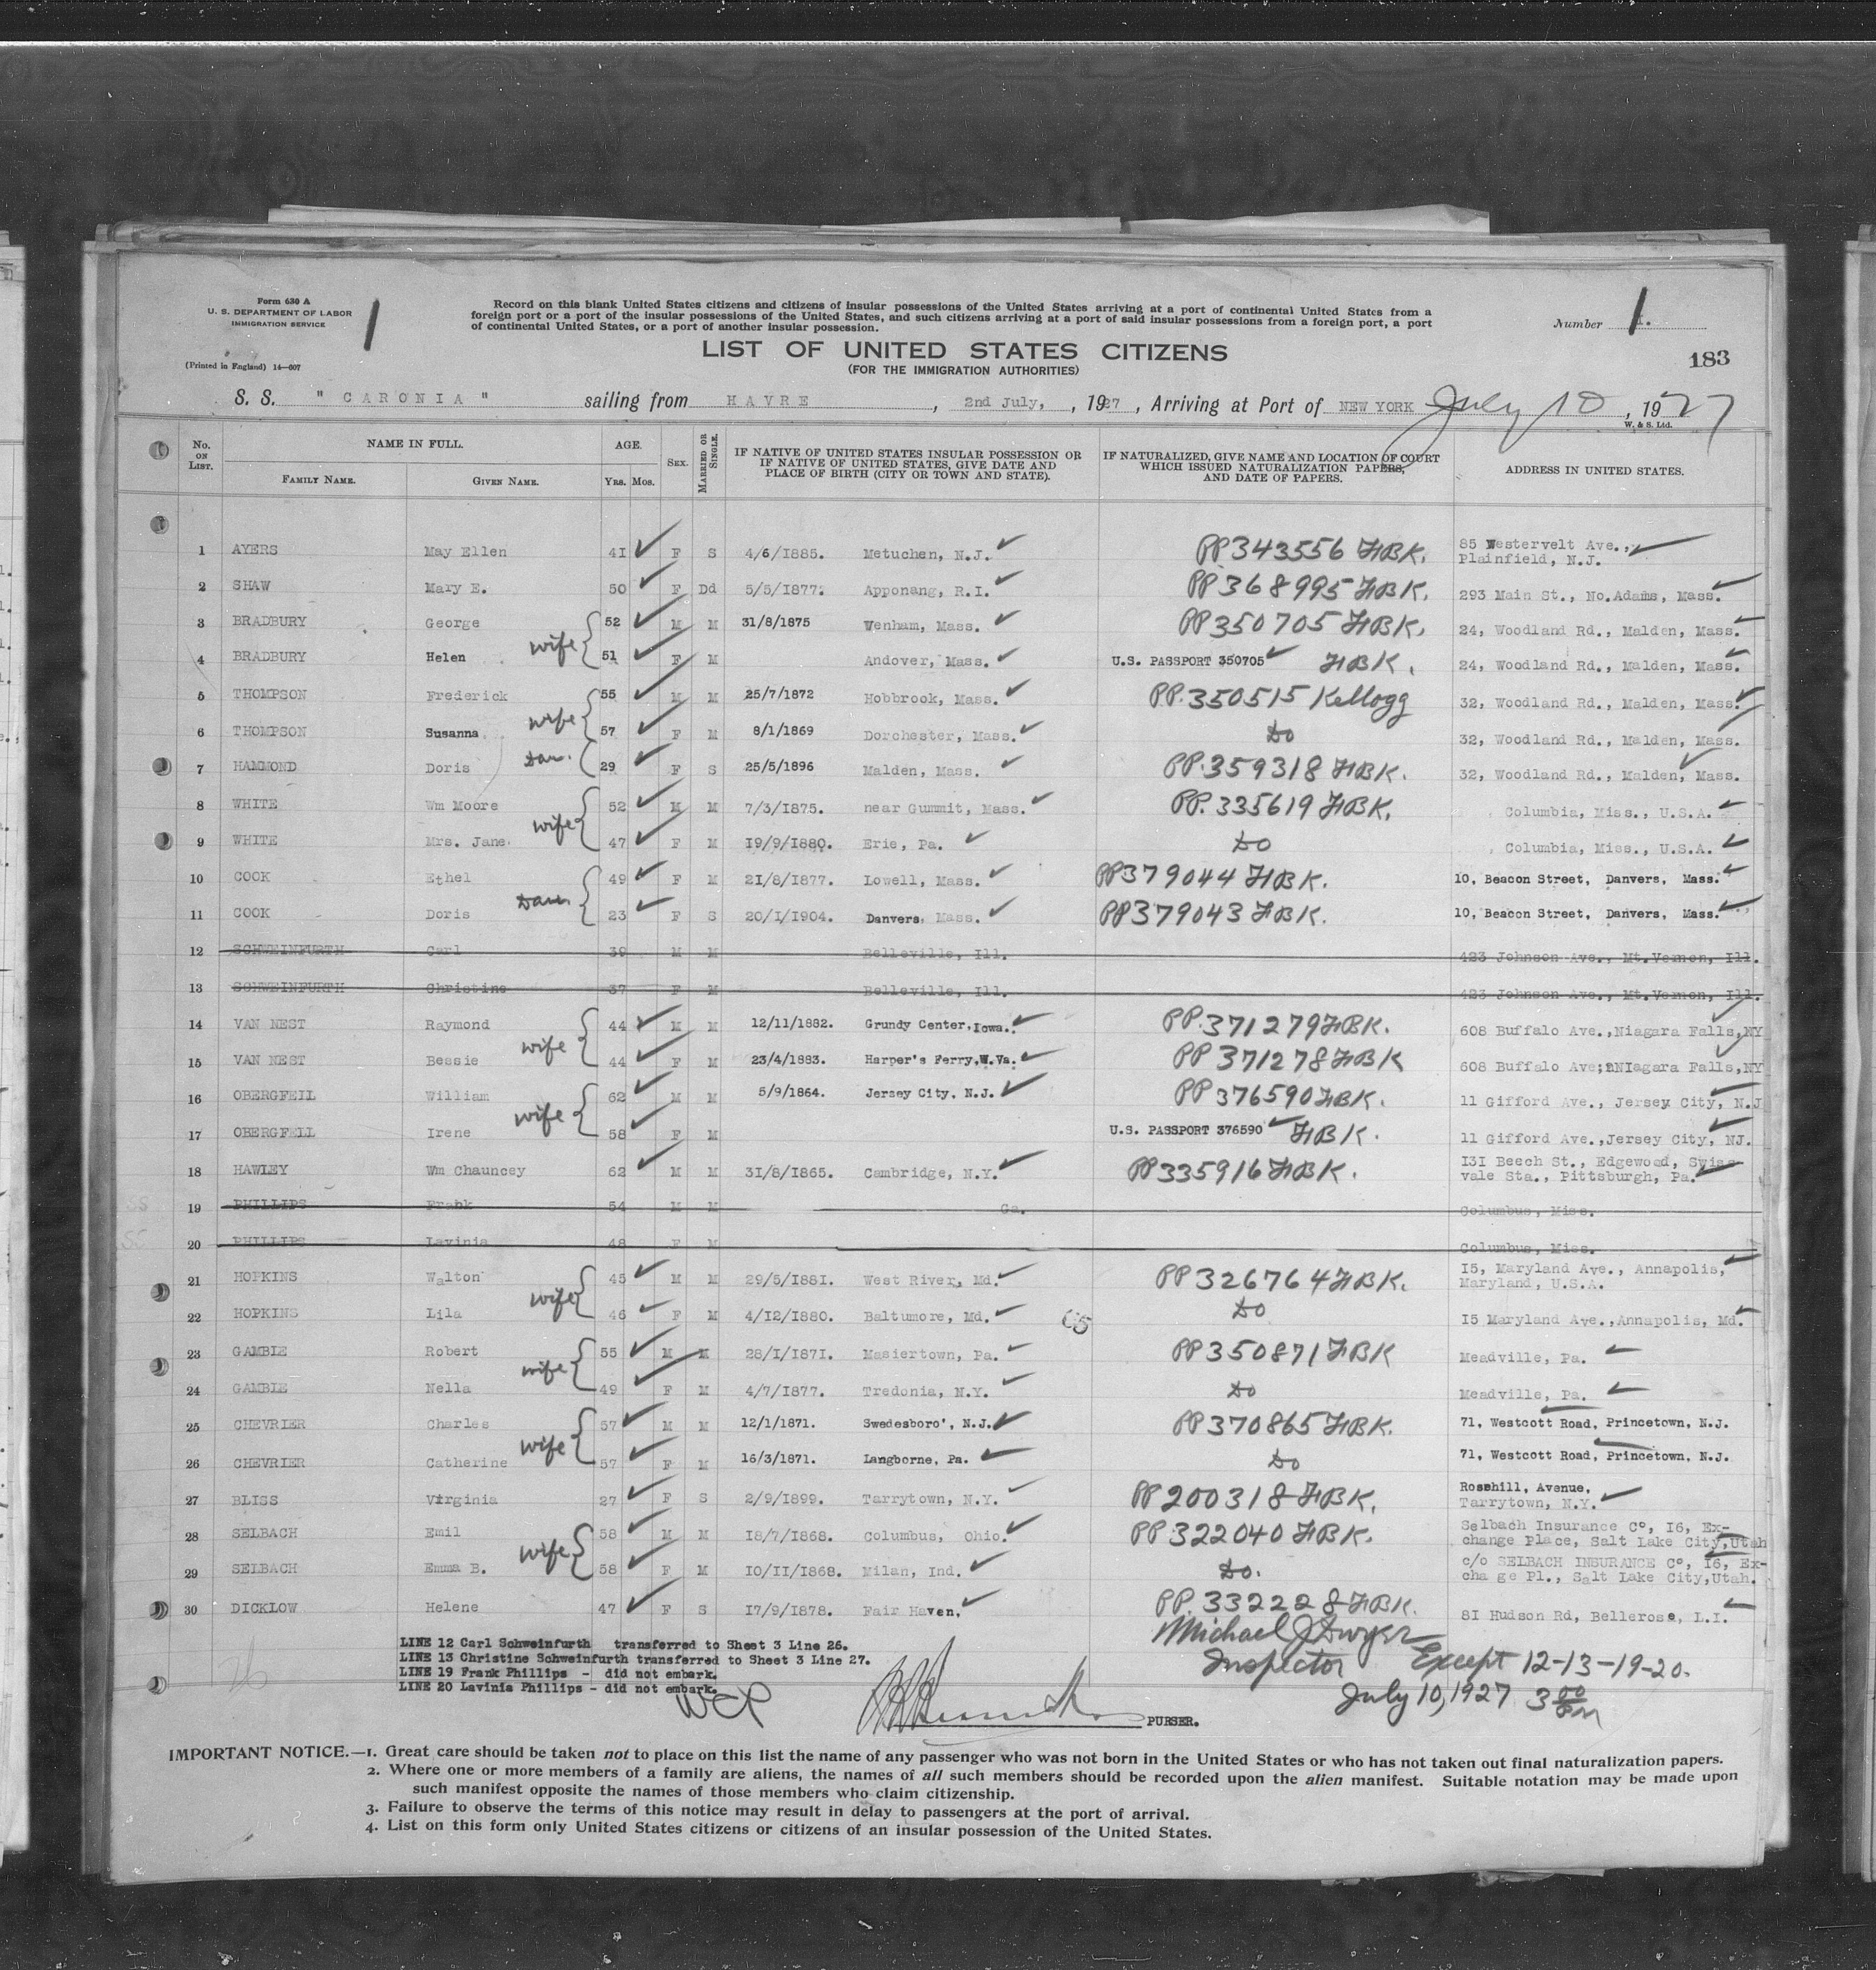 Form 630 A
U. S. DEPARTMENT OF LABOR
IMMIGRATION SERVICE
(Printed in England) 14—607
1
Record on this blank United States citizens and citizens of insular possessions of the United States arriving at a port of continental United States from a
foreign port or a port of the insular possessions of the United States, and such citizens arriving at a port of said insular possessions from a foreign port, a port
of continental United States, or a port of another insular possession.
Number 1.
LIST OF UNITED STATES CITIZENS
(FOR THE IMMIGRATION AUTHORITIES)
183
S. S. " CARONIA " sailing from HAVRE, 2nd July, , 1927, Arriving at Port of NEW YORK July 10, 1927
W. & S. Ltd.
No. ON LIST. NAME IN FULL. FAMILY NAME. GIVEN NAME. AGE. YRS. MOS. SEX. MARRIED OR SINGLE. IF NATIVE OF UNITED STATES INSULAR POSSESSION OR IF NATIVE OF UNITED STATES, GIVE DATE AND PLACE OF BIRTH (CITY OR TOWN AND STATE). IF NATURALIZED, GIVE NAME AND LOCATION OF COURT WHICH ISSUED NATURALIZATION PAPERS, AND DATE OF PAPERS. ADDRESS IN UNITED STATES.
1 AYERS May Ellen 41 F S 4/6/1885. Metuchen, N.J. PP 343556 HBK. 85 Westervelt Ave., Plainfield, N.J.
2 SHAW Mary E. 50 F Dd 5/5/1877. Apponang, R.I. PP 368995 HBK. 293 Main St., No.Adams, Mass.
3 BRADBURY George 52 M M 31/8/1875 Wenham, Mass. PP 350705 HBK. 24, Woodland Rd., Malden, Mass.
4 BRADBURY Helen wife 51 F M Andover, Mass. U.S. PASSPORT 350705 HBK. 24, Woodland Rd., Malden, Mass.
5 THOMPSON Frederick 55 M M 25/7/1872 Hobbrook, Mass. PP. 350515 Kellogg 32, Woodland Rd., Malden, Mass.
6 THOMPSON Susanna wife 57 F M 8/1/1869 Dorchester, Mass. Do 32, Woodland Rd., Malden, Mass.
7 HAMMOND Doris Dau. 29 F S 25/5/1896 Malden, Mass. PP. 359318 HBK. 32, Woodland Rd., Malden, Mass.
8 WHITE Wm Moore 52 M M 7/3/1875. near Gummit, Mass. PP. 335619 HBK. Columbia, Miss., U.S.A.
9 WHITE Mrs. Jane wife 47 F M 19/9/1880. Erie, Pa. Do Columbia, Miss., U.S.A.
10 COOK Ethel 49 F M 21/8/1877. Lowell, Mass. PP 379044 HBK. 10, Beacon Street, Danvers, Mass.
11 COOK Doris Dau. 23 F S 20/1/1904. Danvers, Mass. PP 379043 HBK. 10, Beacon Street, Danvers, Mass.
12 SCHWEINFURTH Carl 39 M M Belleville, Ill. 423 Johnson Ave., Mt.Vernon, Ill.
13 SCHWEINFURTH Christine 37 F M Belleville, Ill. 423 Johnson Ave., Mt.Vernon, Ill.
14 VAN NEST Raymond 44 M M 12/11/1882. Grundy Center, Iowa. PP. 371279 HBK. 608 Buffalo Ave.,Niagara Falls,NY
15 VAN NEST Bessie wife 44 F M 23/4/1883. Harper's Ferry,W.Va. PP 371278 HBK 608 Buffalo Ave;nNIagara Falls,NY
16 OBERGFEIL William 62 M M 5/9/1864. Jersey City, N.J. PP 376590 HBK. 11 Gifford Ave., Jersey City, N.J
17 OBERGFELL Irene wife 58 F M U.S. PASSPORT 376590 HBK. 11 Gifford Ave.,Jersey City, NJ.
18 HAWLEY Wm Chauncey 62 M M 31/8/1865. Cambridge, N.Y. PP 335916 HBK. 131 Beech St., Edgewood, Swiss vale Sta., Pittsburgh, Pa.
19 PHILLIPS Frank 54 M M Ga. Columbus, Miss.
20 PHILLIPS Lavinia 48 F M Columbus, Miss.
21 HOPKINS Walton 45 M M 29/5/1881. West River, Md. PP 326764 HBK. 15, Maryland Ave., Annapolis, Maryland, U.S.A.
22 HOPKINS Lila wife 46 F M 4/12/1880. Baltumore, Md. Do 15 Maryland Ave.,Annapolis, Md.
23 GAMBIE Robert 55 M M 28/1/1871. Masiertown, Pa. PP 350871 HBK Meadville, Pa.
24 GAMBIE Nella wife 49 F M 4/7/1877. Tredonia, N.Y. Do Meadville, Pa.
25 CHEVRIER Charles 57 M M 12/1/1871. Swedesboro', N.J. PP 370865 HBK. 71, Westcott Road, Princetown, N.J.
26 CHEVRIER Catherine wife 57 F M 16/3/1871. Langborne, Pa. Do 71, Westcott Road, Princetown, N.J.
27 BLISS Virginia 27 F S 2/9/1899. Tarrytown, N.Y. PP 200318 HBK. Rosehill, Avenue, Tarrytown, N.Y.
28 SELBACH Emil 58 M M 18/7/1868. Columbus, Ohio. PP 322040 HBK. Selbach Insurance Co, 16, Ex- change Place, Salt Lake City,Utah
29 SELBACH Emma B. wife 58 F M 10/11/1868. Milan, Ind. Do. c/o SELBACH INSURANCE Co, 16, Ex- cha ge Pl., Salt Lake City,Utah.
30 DICKLOW Helene 47 F S 17/9/1878. Fair Haven. PP. 332228 HBK. 81 Hudson Rd, Bellerose, L.I.
LINE 12 Carl Schweinfurth transferred to Sheet 3 Line 26.
LINE 13 Christine Schweinfurth transferred to Sheet 3 Line 27.
LINE 19 Frank Phillips - did not embark.
LINE 20 Lavinia Phillips - did not embark.
Michael J Dwyer
Inspector Except 12-13-19-20.
July 10, 1927 3 00 PM
PURSER.
IMPORTANT NOTICE.—1. Great care should be taken not to place on this list the name of any passenger who was not born in the United States or who has not taken out final naturalization papers.
2. Where one or more members of a family are aliens, the names of all such members should be recorded upon the alien manifest. Suitable notation may be made upon
such manifest opposite the names of those members who claim citizenship.
3. Failure to observe the terms of this notice may result in delay to passengers at the port of arrival.
4. List on this form only United States citizens or citizens of an insular possession of the United States.